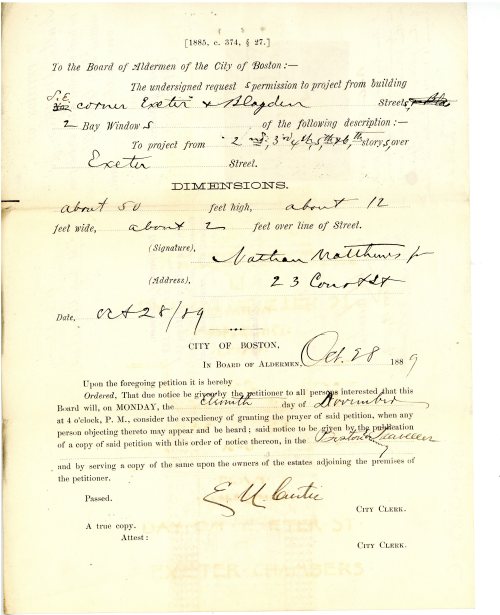 [1885, c. 374, § 27.]
To the Board of Aldermen of the City of Boston:—
The undersigned request s permission to project from building
S.E. corner Exeter & Blagden Streets,
2 Bay Windows of the following description:—
To project from 2nd, 3rd, 4th, 5th & 6th storys, over
Exeter Street.
DIMENSIONS.
about 50 feet high, about 12
feet wide, about 2 feet over line of Street.
(Signature), Nathan Matthews Jr
(Address), 23 Court St
Date, Oct 28/89
CITY OF BOSTON,
IN BOARD OF ALDERMEN, Oct. 28 1889
Upon the foregoing petition it is hereby
Ordered, That due notice be given by the petitioner to all persons interested that this
Board will, on MONDAY, the day of November
at 4 o'clock, P. M., consider the expediency of granting the prayer of said petition, when any
person objecting thereto may appear and be heard; said notice to be given by the publication
of a copy of said petition with this order of notice thereon, in the Boston Traveller
and by serving a copy of the same upon the owners of the estates adjoining the premises of
the petitioner.
Passed.
CITY CLERK.
A true copy.
Attest:
CITY CLERK.
EXETER CHAMBERS